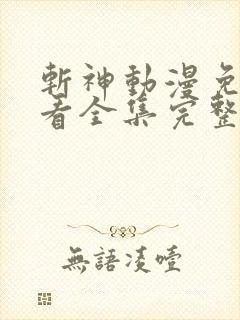 斬神動漫免
看全集完整
無語凌噎